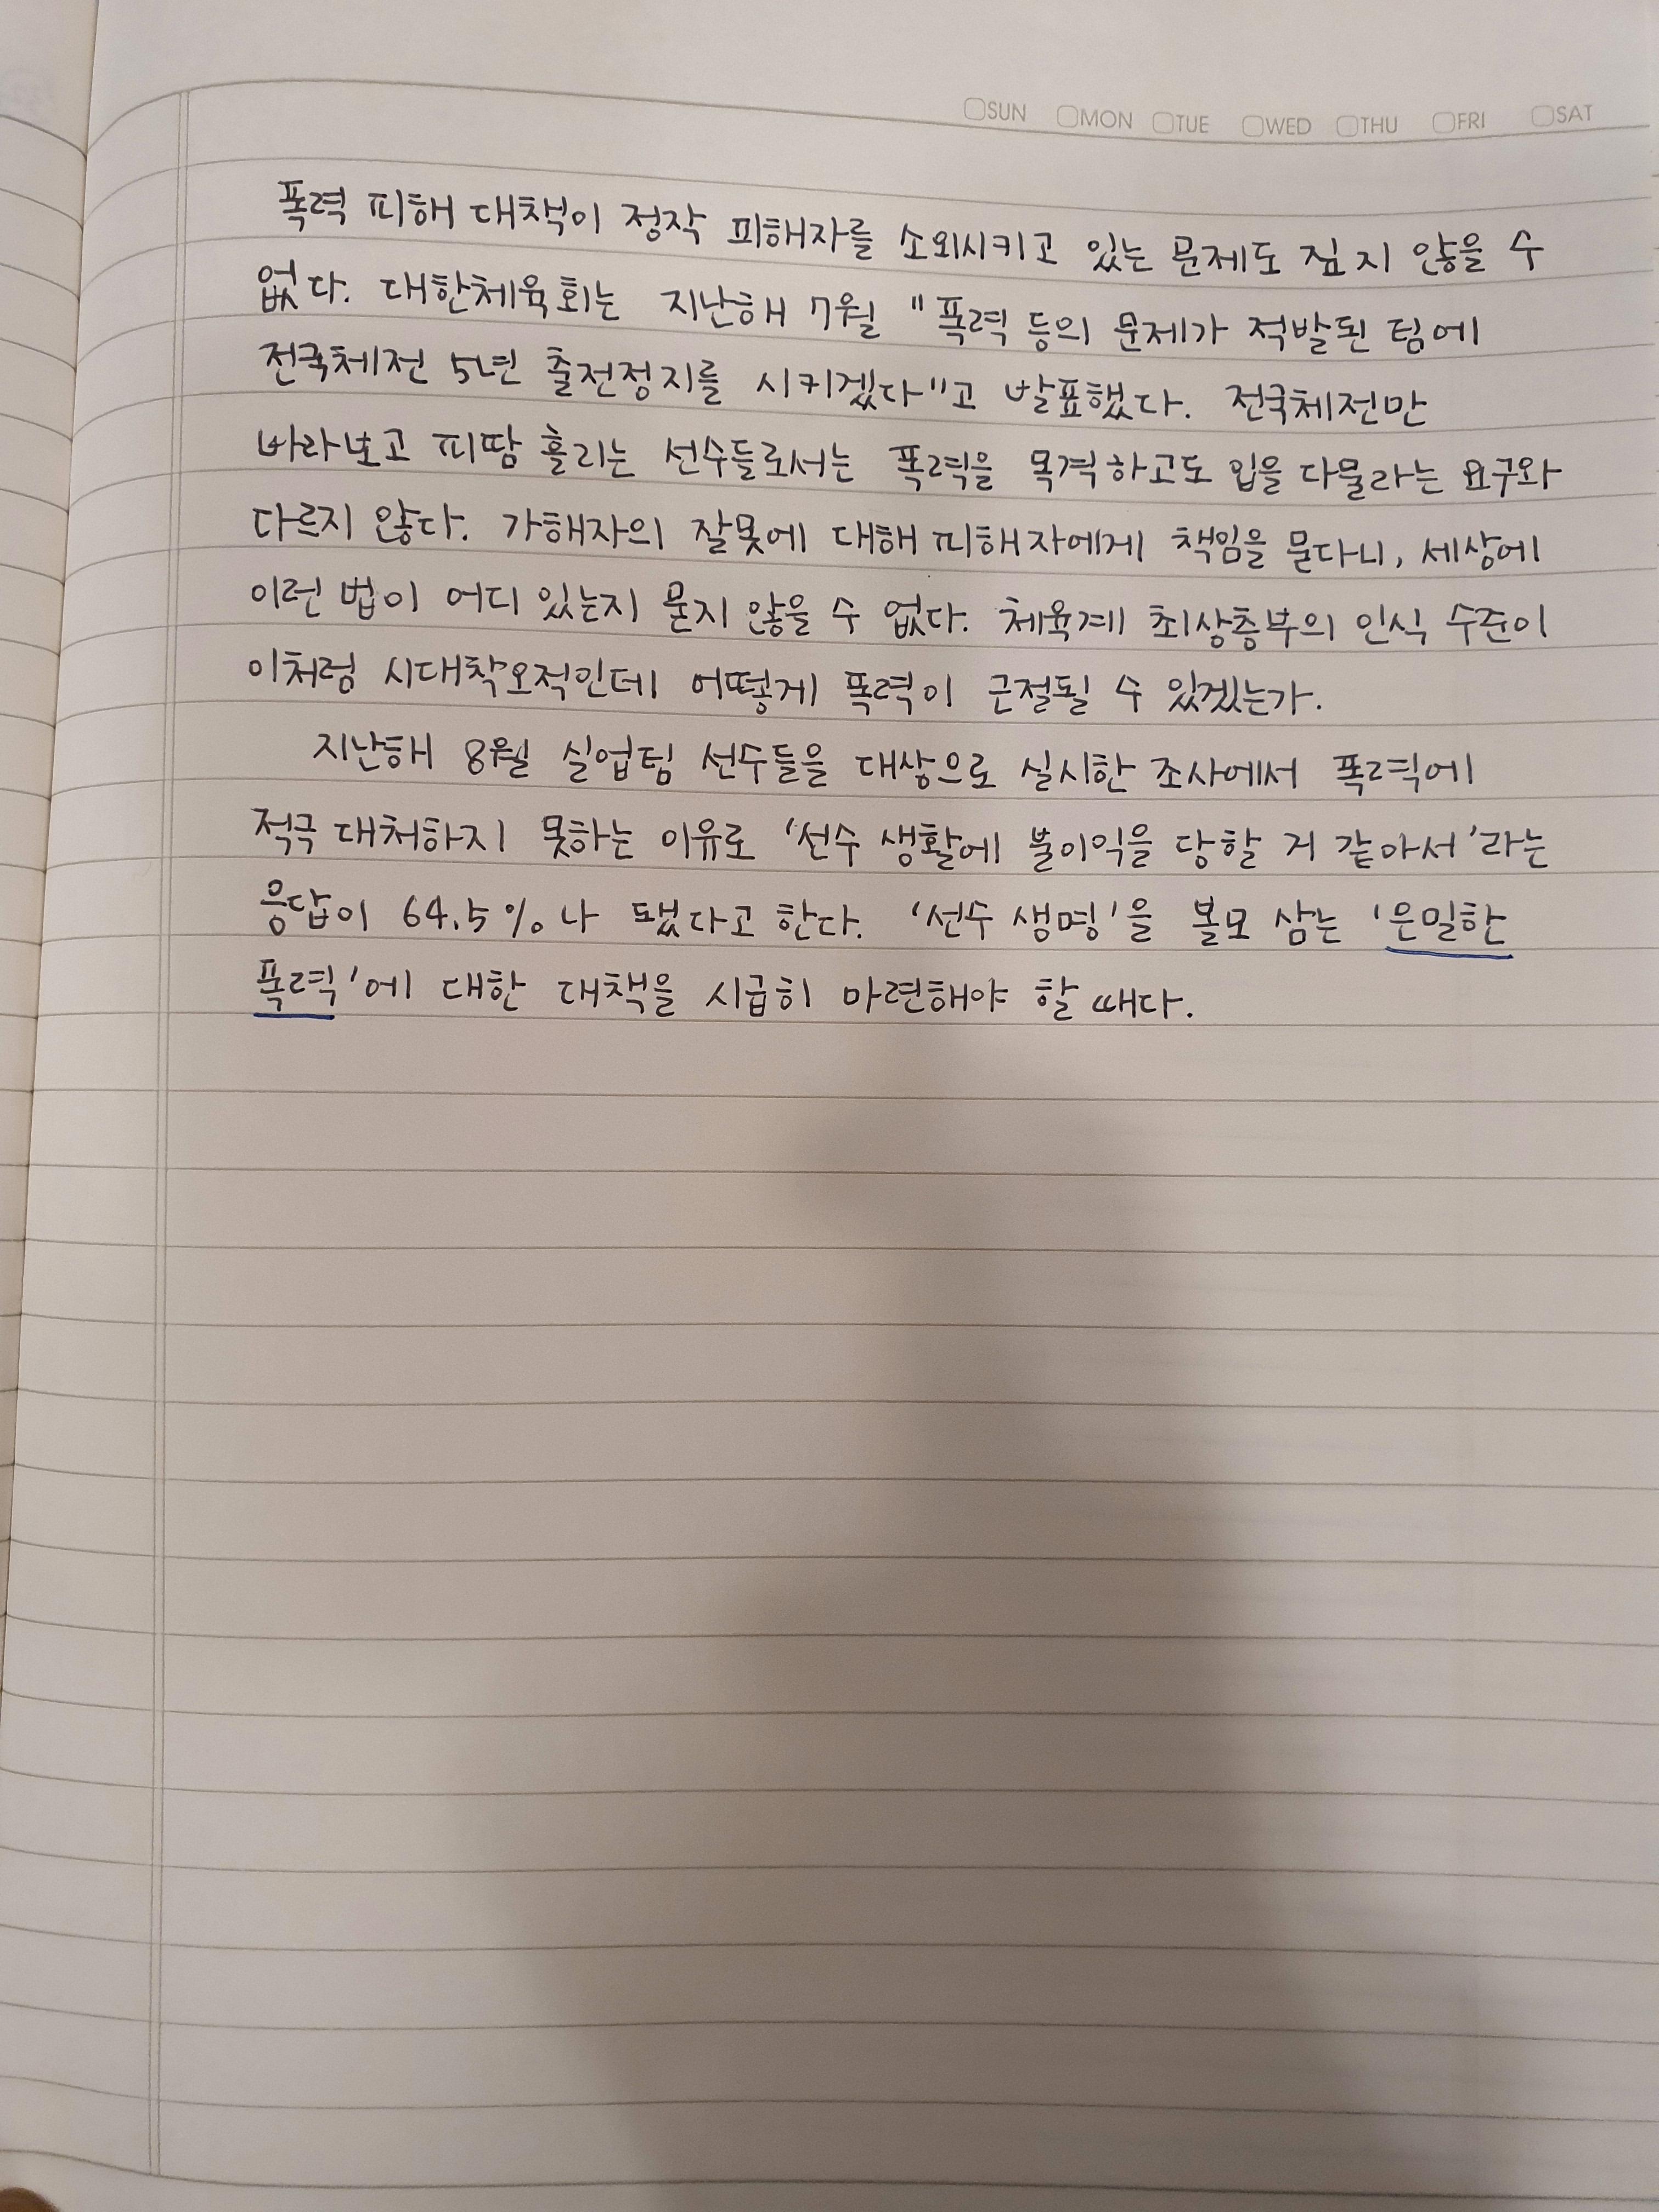 SUN MON TUE WED THU FRI SAT
폭력 피해 대책이 정작 피해자를 소외시키고 있는 문제도 짚지 않을 수
없다. 대한체육회는 지난해 7월 "폭력 등의 문제가 적발된 팀에
전국체전 5년 출전정지를 시키겠다"고 발표했다. 전국체전만
바라보고 피땀 흘리는 선수들로서는 폭력을 목격하고도 입을 다물라는 요구와
다르지 않다. 가해자의 잘못에 대해 피해자에게 책임을 묻다니, 세상에
이런 법이 어디 있는지 묻지 않을 수 없다. 체육계 최상층부의 인식 수준이
이처럼 시대착오적인데 어떻게 폭력이 근절될 수 있겠는가.
지난해 8월 실업팀 선수들을 대상으로 실시한 조사에서 폭력에
적극 대처하지 못하는 이유로 '선수 생활에 불이익을 당할 거 같아서'라는
응답이 64.5%나 됐다고 한다. '선수 생명'을 볼모 삼는 '은밀한
폭력'에 대한 대책을 시급히 마련해야 할 때다.